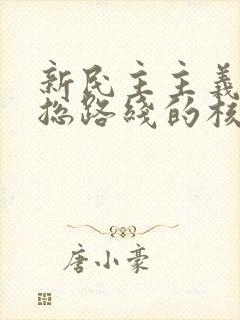 新民主主義
总路綫的核
唐小豪